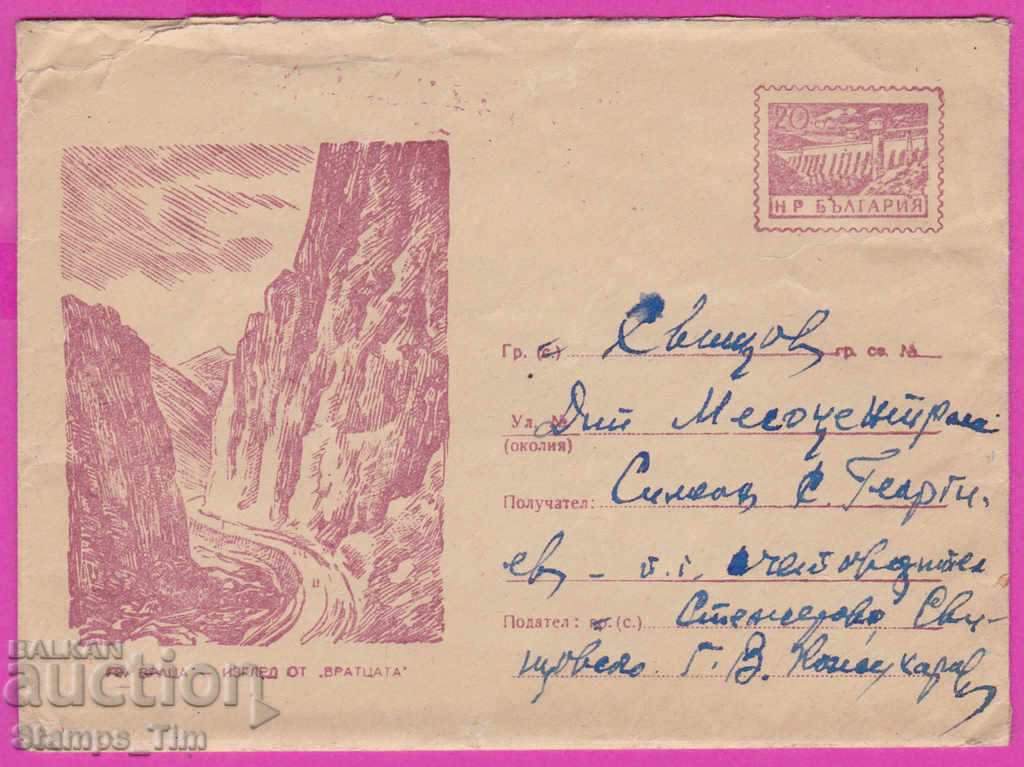 20 ст
Н Р БЪЛГАРИЯ
Гр. (с.) Свищов гр. св. №
Ул. № Дип Месоцентрала
(околия)
Получател: Симеон С. Георги-
ев – гл. счетоводител
Подател: гр. (с.) Стежерово, Сви-
щовско Г. В.
ГР. ВРАЦА – ИЗГЛЕД ОТ „ВРАТЦАТА"
BALKAN
auction
Stamps_Tim